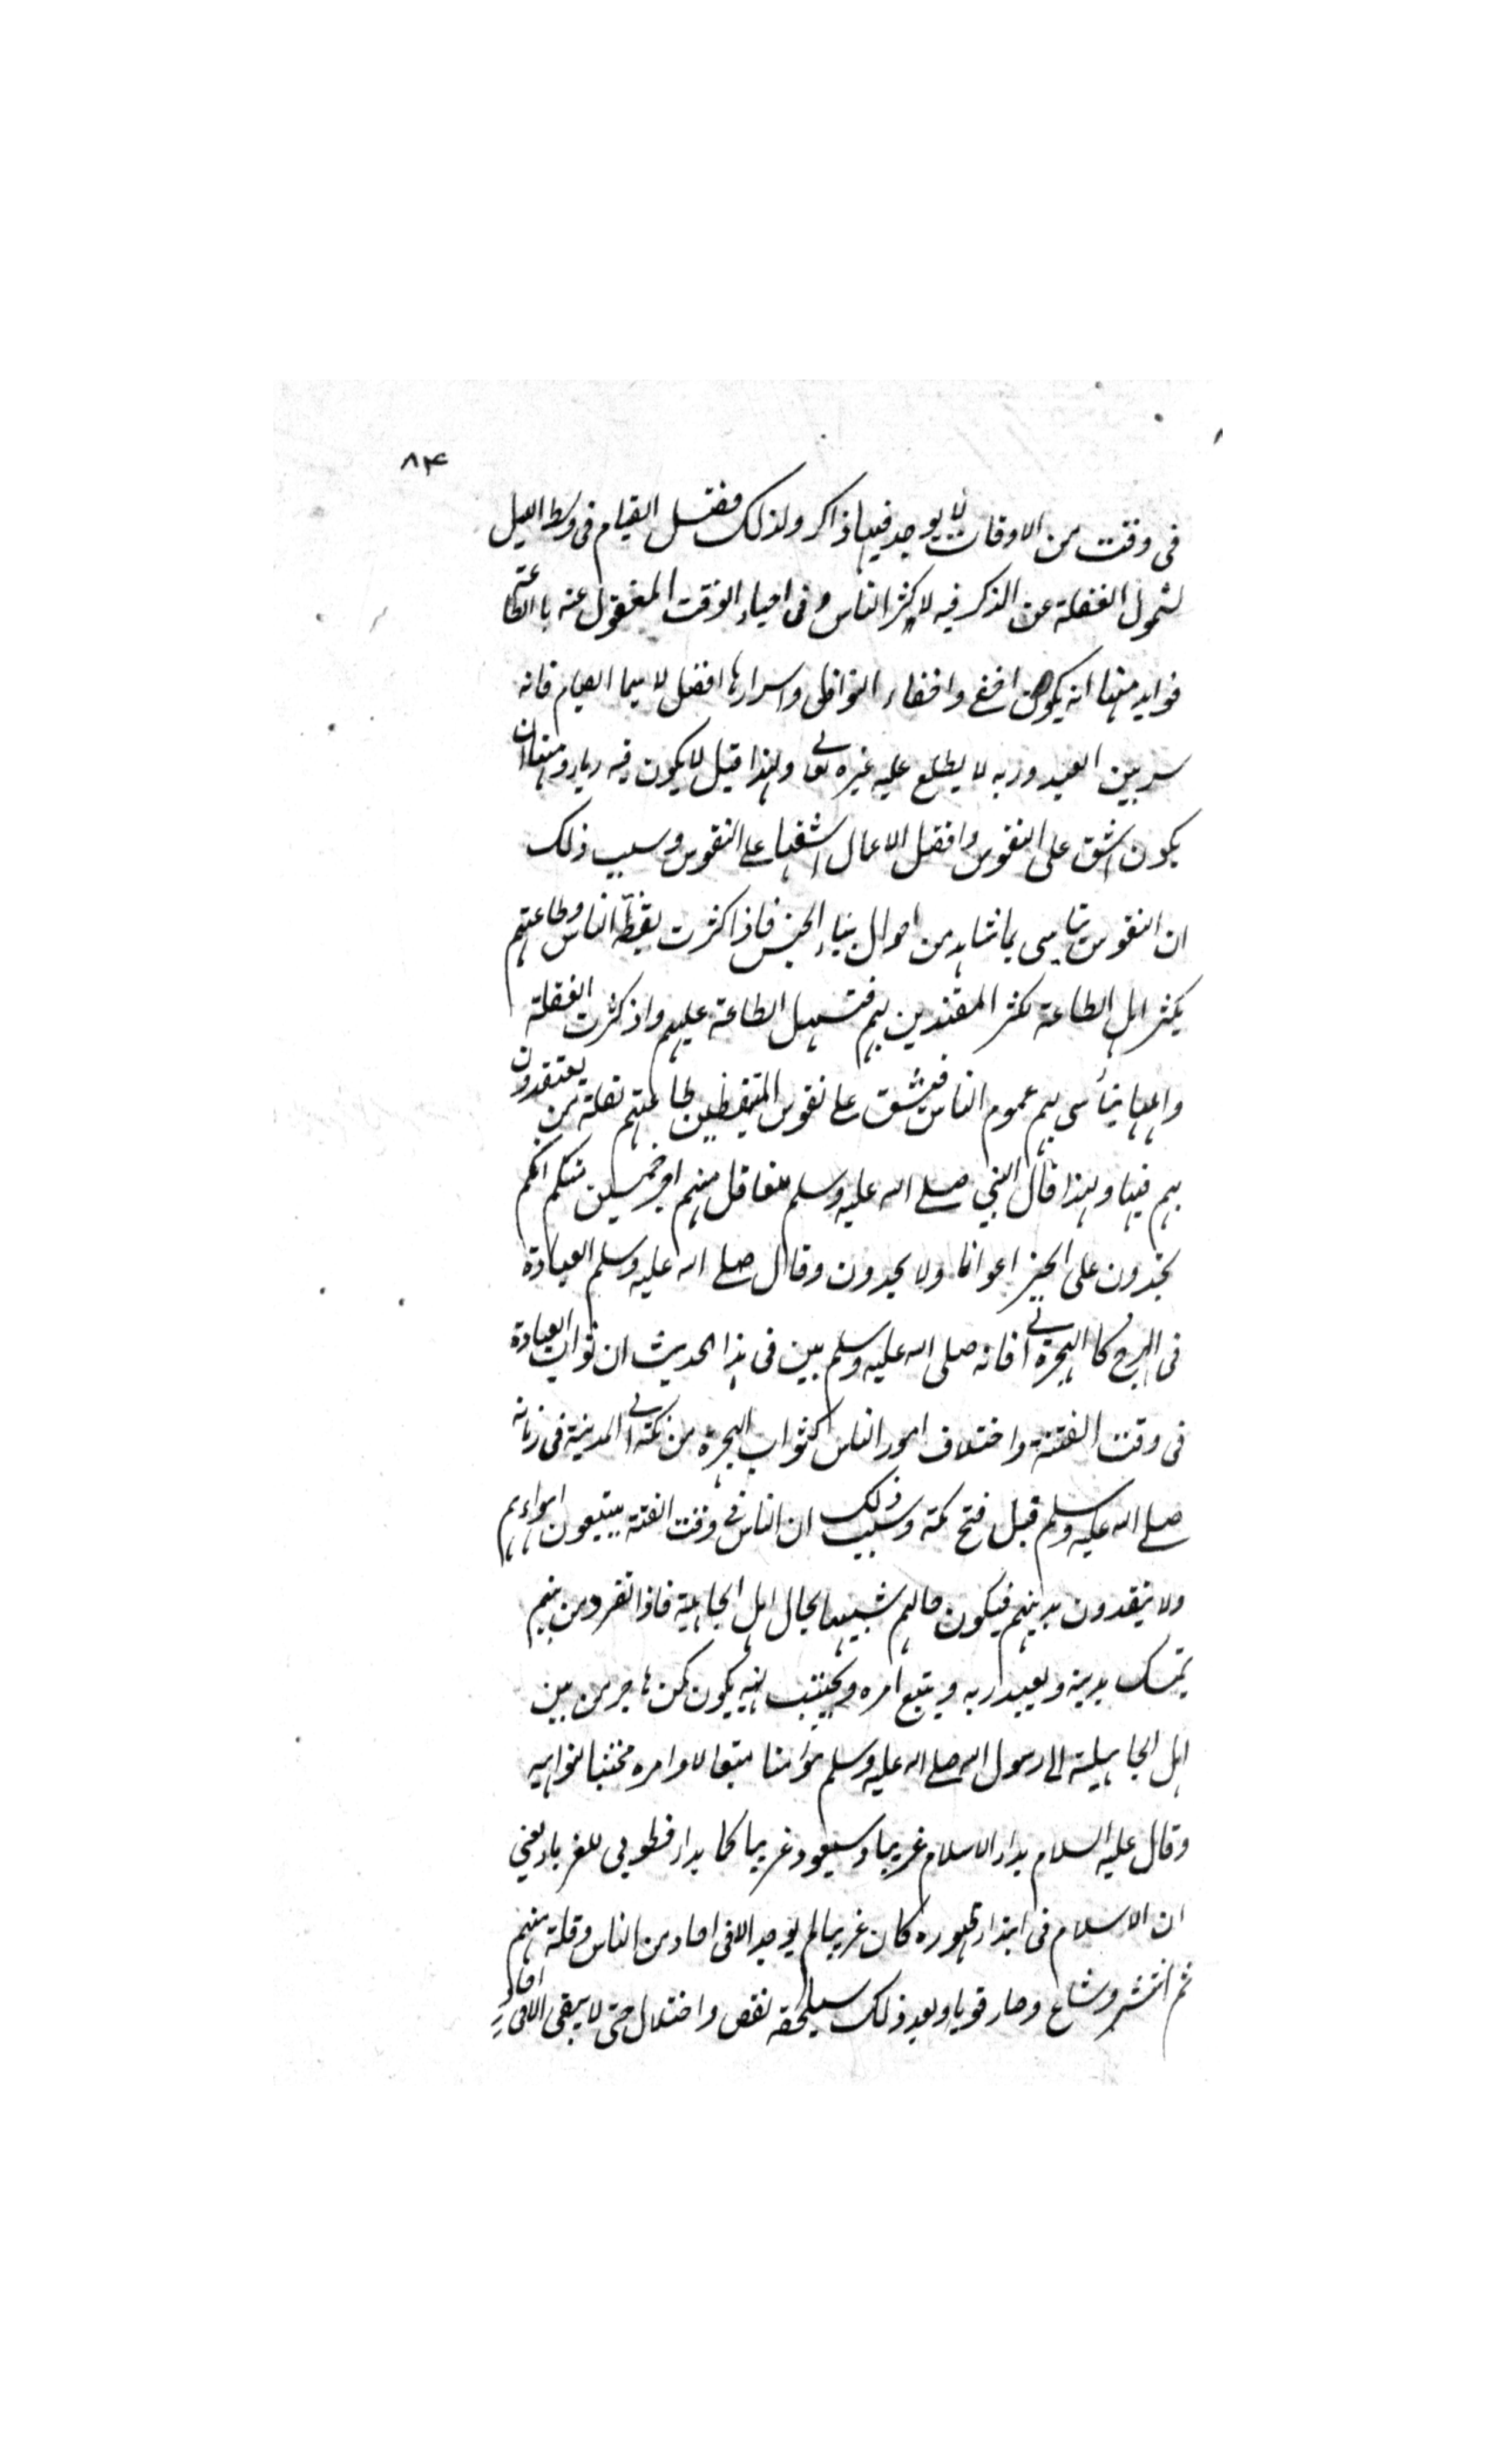 ٨٤
فى وقت من الاوقات لا يوجد فيها ذاكر ولذلك فضل القيام فى وسط الليل
لشمول الغفلة عن الذكر فيه لاكثر الناس وفى احياء الوقت المغفول عنه بالطاعة
فوايد منها انه يكون اخفى واخفاء النوافل واسرارها افضل لا سيما الصيام فانه
سر بين العبد وربه لا يطلع عليه غيره تعالى ولهذا قيل لا يكون فيه رياء ومنها ان
يكون اشق على النفوس وافضل الاعمال اشقها على النفوس وسبب ذلك
ان النفوس تتاسى بما تشاهد من احوال ابناء الجنس فاذا كثرت يقظة الناس وطاعتهم
يكثر اهل الطاعة لكثر المقتدين بهم فتسهل الطاعة عليهم واذ كثرت الغفلة
واهلها يتأسى بهم عموم الناس فيشق على نفوس المتيقظين طاعتهم لقلة من يعتقدون
بهم فيها ولهذا قال النبى صلى الله عليه وسلم للعامل منهم اجر خمسين منكم انكم
تجدون على الخير اعوانا ولا يجدون وقال صلى الله عليه وسلم العبادة
فى الهرج كالهجرة الى فانه صلى الله عليه وسلم بين فى هذا الحديث ان ثواب العبادة
فى وقت الفتنة واختلاف امور الناس كثواب الهجرة من مكة الى المدينة فى زمانه
صلى الله عليه وسلم قبل فتح مكة وسبب ذلك ان الناس فى وقت الفتنة يتبعون اهواءهم
ولا يتقيدون بدينهم فيكون حالهم شبيها بحال اهل الجاهلية فاذا تفرد من بينهم
يتمسك بدينه ويعبد ربه ويتبع امره ويجتنب نهيه يكون كمن هاجر من بين
اهل الجاهيلية الى رسول الله صلى الله عليه وسلم مؤمنا متبعا لاوامره مجتنبا لنواهيه
وقال عليه السلام بداء الاسلام غريبا وسيعود غريبا كما بداء فطوبى للغرباء يعنى
ان الاسلام فى ابتداء ظهوره كان غريبا لم يوجد الا فى احاد من الناس وقلة منهم
ثم انتشر وشاع وصار قويا وبعد ذلك سيلحقه نقص واختلال حتى لا يبقى الا فى احاد